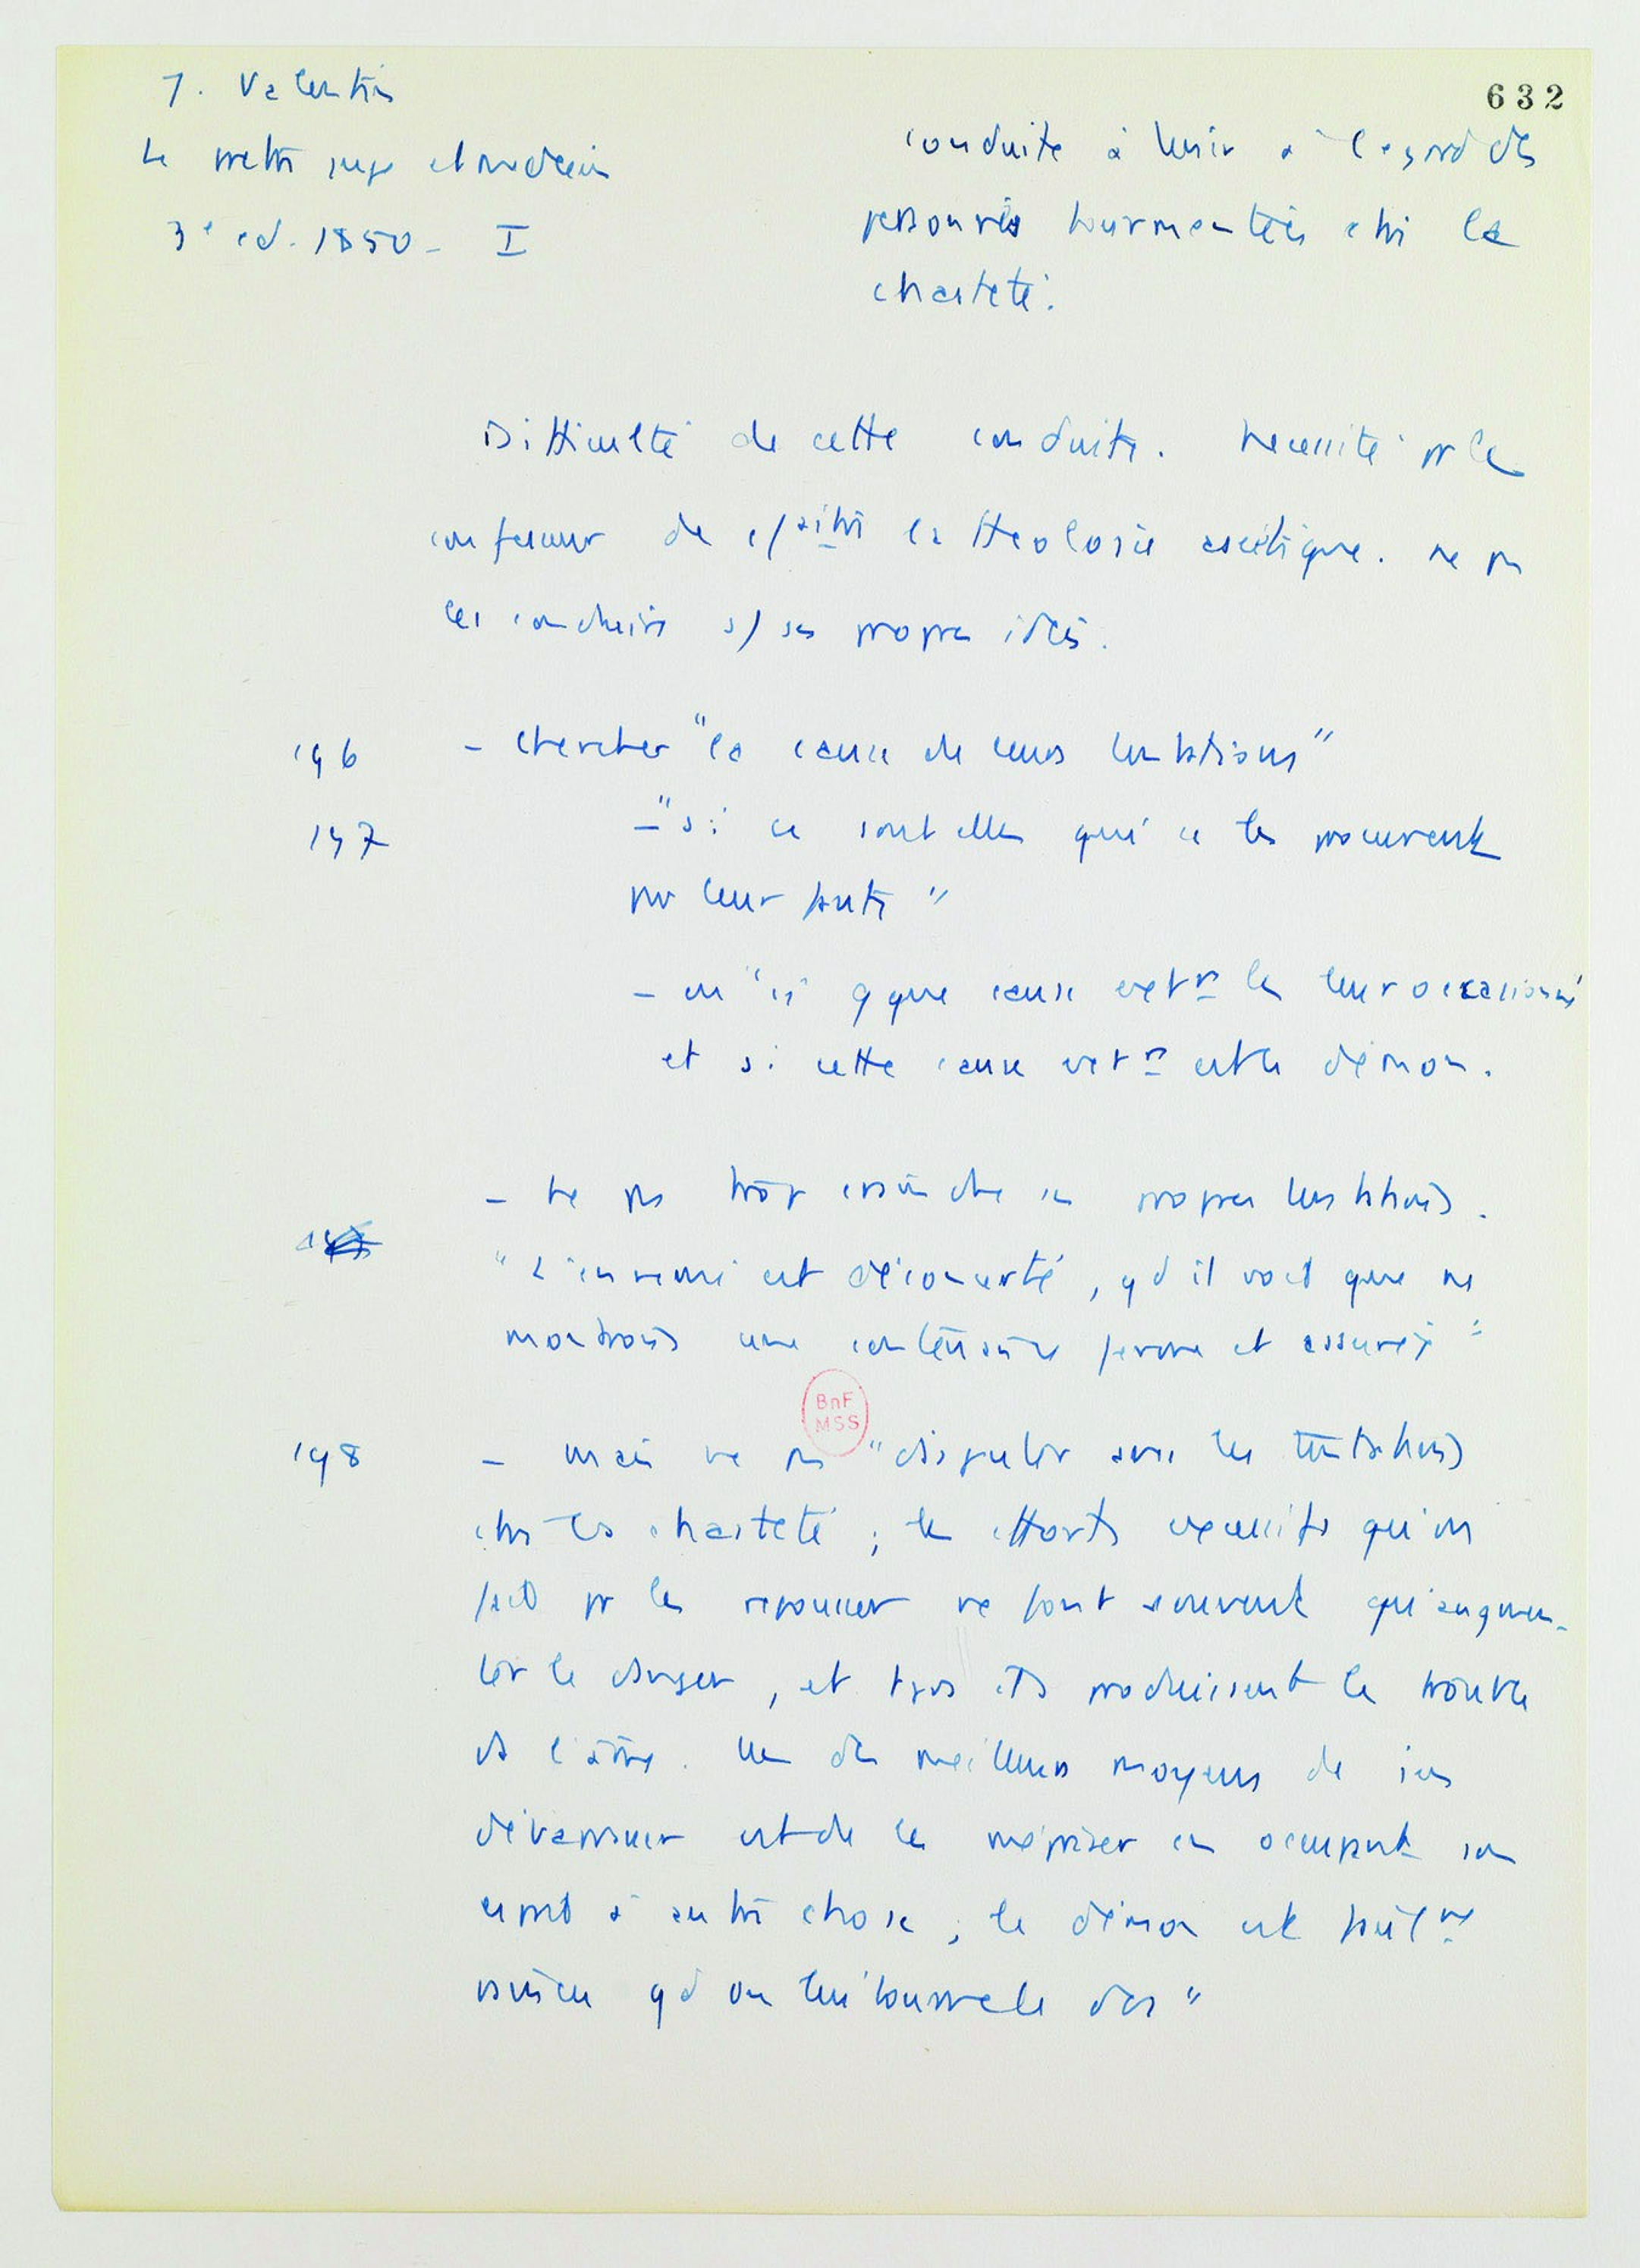 632
J. Valentin
Le prêtre juge et médecin
3e ed. 1850 - I
Conduite à tenir à l'egard des
personnes tourmentées ctre la
chasteté.
Difficulté de cette conduite. Necessité pr le
confesseur de cpaitre la theologie ascétique. ne pas
les conduire s/ ses propres idées.
196 - Chercher "la cause de leurs tentations"
197 - "si ce sont elles qui se les procurent
par leur faute"
- ou "si qque cause extre les leur occasionne"
et si cette cause extre est le démon.
- Ne pas trop craindre ses propres tentations.
"L'ennemi est déconcerté, qd il voit que ns
montrons une contenance ferme et assurée"
BnF
MSS
198 - mais ne pas "disputer avec les tentations
ctre la chasteté ; les efforts excessifs qu'on
fait pr les repousser ne font souvent qu'augmen-
ter le danger, et tjrs ils produisent le trouble
ds l'âme. Un des meilleurs moyens de s'en
débarrasser est de les mépriser en occupant son
esprit à autre chose ; le démon est facilmt
vaincu qd on lui tourne le dos"